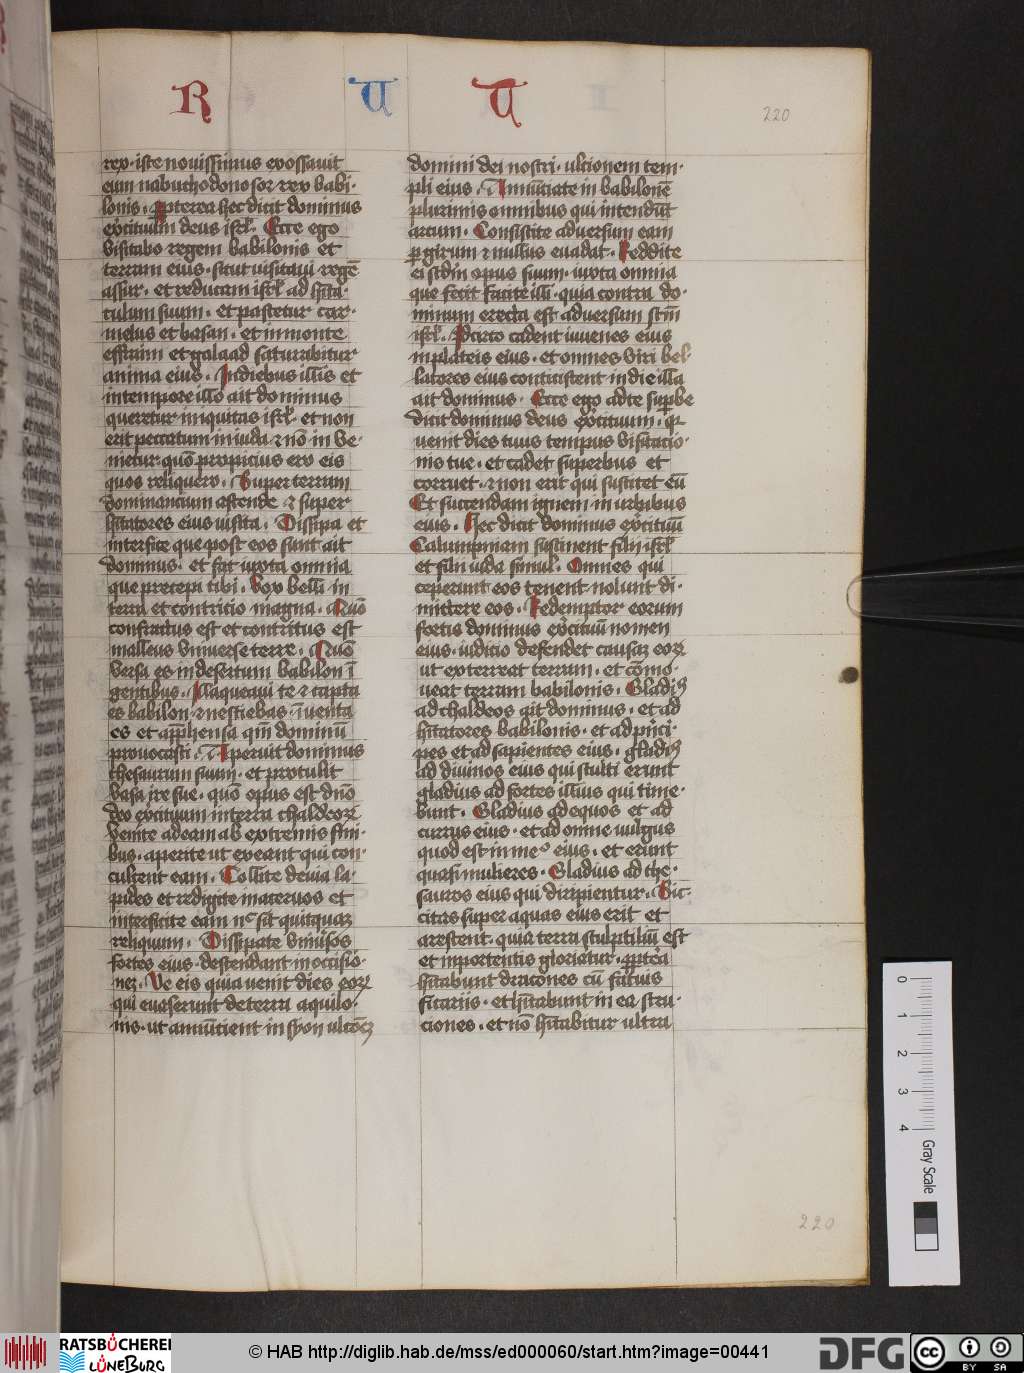 R U U
220
rex · iste novissimus exossavit
eum nabuthodonosor rex babi·
lonis · Ppterea hec dicit dominus
exercituum deus isrl · Ecce ego
visitabo regem babilonis et
terram eius · sicut visitavi regē
assur · et reducam isrl ad hita·
culum suum · et pascetur car·
melus et basan · et in monte
effraim et galaad saturabitur
anima eius · In diebus illis et
in tempore illo ait dominus
queretur iniquitas isrl · et non
erit peccatum in iuda et nō in ve·
nietur quō propicius ero eis
quos reliquero · Super terram
dominancium ascende et super
hitatores eius visita · Dissipa et
interfice que post eos sunt ait
dominus · et fac iuxta omnia
que precepi tibi · Vox belli in
terra et contricio magna · Quō
confractus est et contritus est
malleus universe terre · Quō
versa es in desertum babilon ī
gentibus · Illaqueavi te et capta
es babilon et nesciebas · īventa
es et apphensa qm̄ dominū
provocasti · Aperuit dominus
thesaurum suum · et protulit
vasa ire sue · quō opus est dn̄o
deo exercituum in terra chaldeorꝝ
venite ad eam ab extremis fini·
bus · aperite ut exeant qui con·
culcent eam · Tollite de via la·
pides et redigite in acervos et
interficite eam nec sit quicquam
reliquum · Dissipate universos
fortes eius · descendant in occisio·
nem · Ve eis quia venit dies eorꝝ
qui evaserunt de terra aquilo·
nis · ut annūcient in syon ultōem
domini dei nostri · ulcionem tem·
pli eius · Annūciate in babilonē
plurimis omnibus qui intendūt
arcum · Consistite adversum eam
p girum et nullus evadat · Reddite
ei scdm opus suum · iuxta omnia
que fecit facite illi · quia contra do·
minum erecta est adversum scm̄
isrl · Idcirco cadent iuvenes eius
in plateis eius · et omnes viri bel·
latores eius conticescent in die illa
ait dominus · Ecce ego ad te supbe
dicit dominus deus exercituum · qr
venit dies tuus tempus visitacio·
nis tue · et cadet superbus et
corruet · et non erit qui suscitet eū
Et succendam ignem in urbibus
eius · Hec dicit dominus exercituū
Calumpniam sustinent filii isrl
et filii iuda simul · Omnes qui
ceperunt eos tenent nolunt di·
mittere eos · Redemptor eorum
fortis dominus exercituū nomen
eius · iudicio defendet causam eorꝝ
ut exterreat terram · et cōmo·
veat terram babilonis · Gladius
ad chaldeos ait dominus · et ad
hitatores babilonis · et ad prīci·
pes et ad sapientes eius · gladius
ad divinos eius qui stulti erunt
gladius ad fortes illius qui time·
bunt · Gladius ad equos et ad
currus eius · et ad omne vulgus
quod est in meo eius · et erunt
quasi mulieres · Gladius ad the·
sauros eius qui diripientur · Sic·
citas super aquas eius erit et
arescent · quia terra sculptiliū est
et in portentis gloriatur · ppterea
hitabunt dracones cū fatuis
ficariis · et hitabunt in ea stru·
ciones · et nō hitabitur ultra
220
0 1 2 3 4
Gray Scale
RATSBÜCHEREI
LÜNEBURG
© HAB http://diglib.hab.de/mss/ed000060/start.htm?image=00441
DFG
cc BY SA